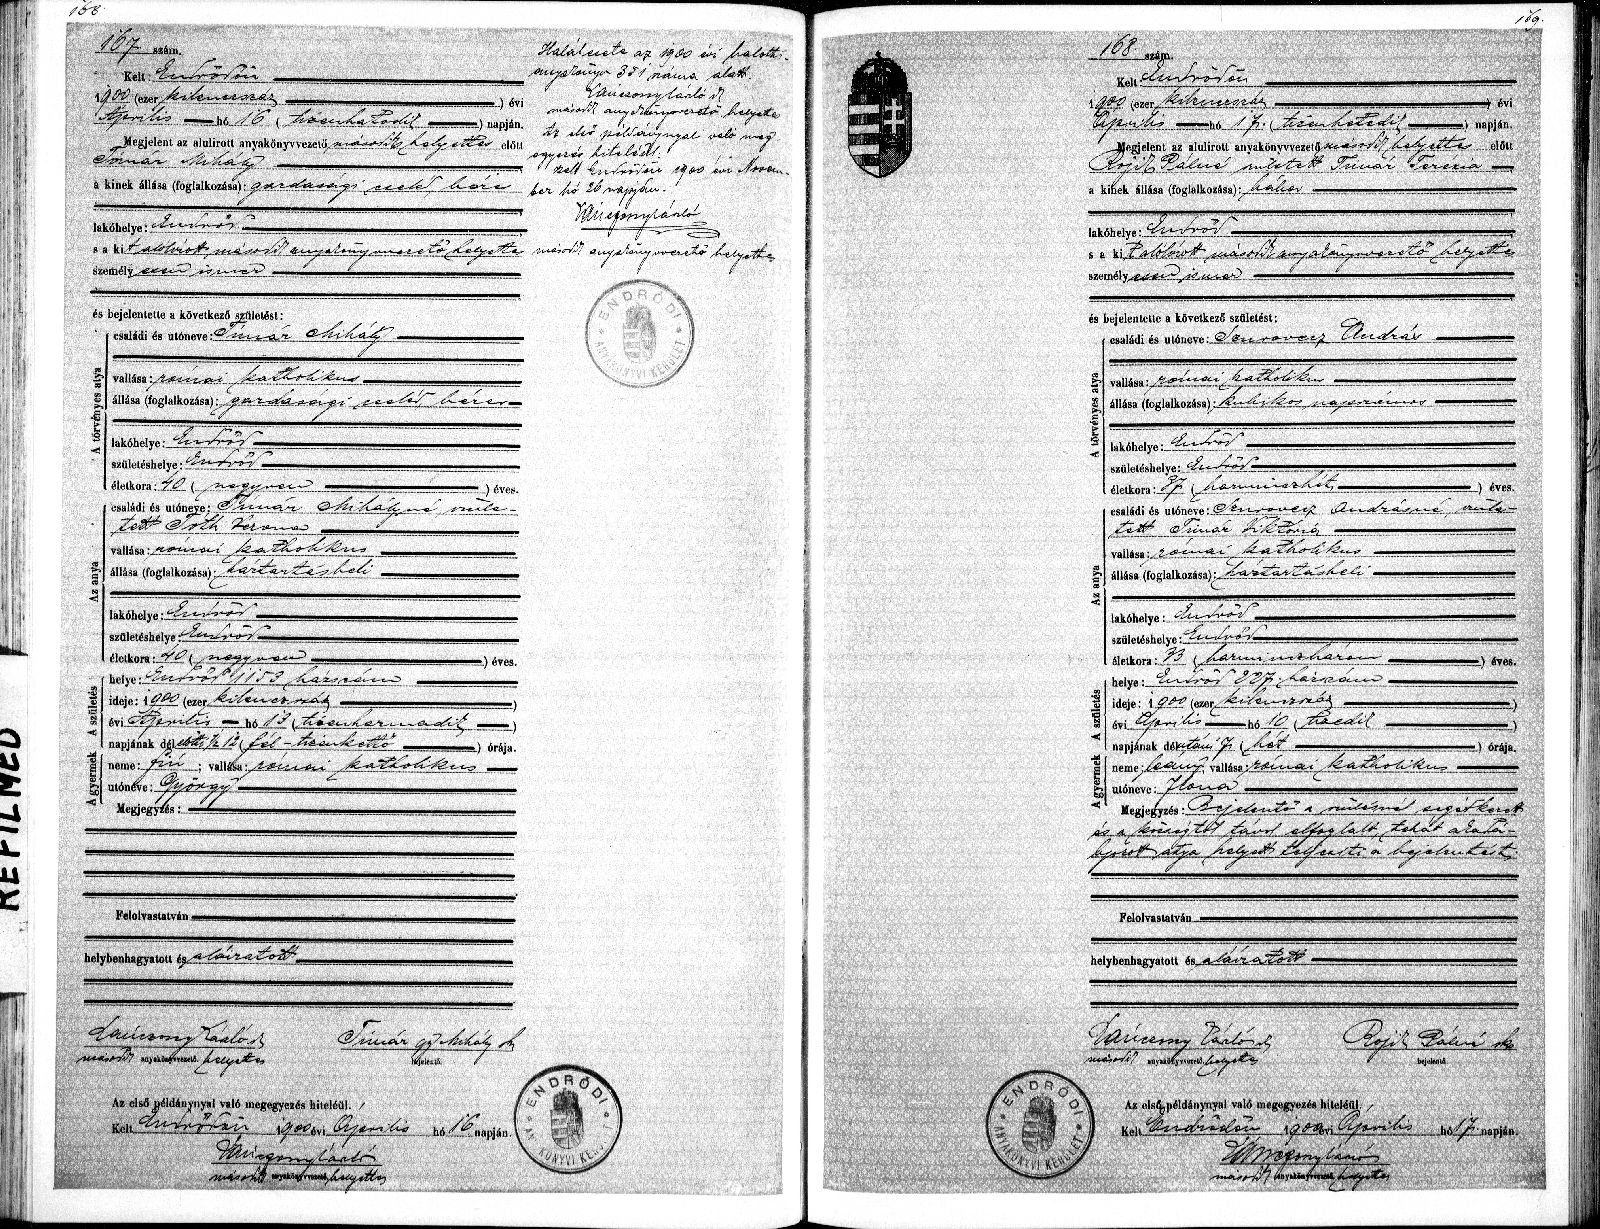 168.
167 szám.
Kelt: Endrődön
1900 (ezer kilenczszáz) évi
Április hó 16 (tizenhatodik) napján.
Megjelent az alulirott anyakönyvvezető második helyettes előtt
Timár Mihály
a kinek állása (foglalkozása): gazdasági cseléd, béres
lakóhelye: Endrőd
s a kit alulirott, második anyakönyvvezető helyettes
személyesen ismer
és bejelentette a következő születést:
A törvényes atya
családi és utóneve: Timár Mihály
vallása: római katholikus
állása (foglalkozása): gazdasági cseléd, béres
lakóhelye: Endrőd
születéshelye: Endrőd
életkora: 40 (negyven) éves.
Az anya
családi és utóneve: Timár Mihályné szüle-
tett Tóth Verona
vallása: római katholikus
állása (foglalkozása): háztartásbeli
lakóhelye: Endrőd
születéshelye: Endrőd
életkora: 40 (negyven) éves.
A születés
helye: Endrőd 1153 házszám
ideje: 1900 (ezer kilenczszáz)
évi Április hó 13 (tizenharmadik)
napjának délelőtti ½12 (fél-tizenkettő) órája.
A gyermek
neme: fiú; vallása: római katholikus
utóneve: György
Megjegyzés:
Felolvastatván
helybenhagyatott és aláiratott
Vánesony László sk
második anyakönyvvezető helyettes
Timár Mihály sk
bejelentő.
Az első példánynyal való megegyezés hiteléül.
Kelt Endrődön 1900 évi Április hó 16 napján.
második anyakönyvvezető helyettes
ENDRŐDI ANYAKÖNYVI KERÜLET
Halálesete az 1900 évi halotti
anyakönyv 351 száma alatt.
második anyakönyvvezető helyettes
Az első példánynyal való meg
egyezés hiteléül.
Kelt Endrődön 1900 évi Novem-
ber hó 26 napján.
második anyakönyvvezető helyettes
ENDRŐDI ANYAKÖNYVI KERÜLET
REFILMED
169.
168 szám.
Kelt Endrődön
1900 (ezer kilenczszáz) évi
Április hó 17. (tizenhetedik) napján.
Megjelent az alulirott anyakönyvvezető második helyettes előtt
Rojik Pálné született Timár Terézia
a kinek állása (foglalkozása): bába
lakóhelye: Endrőd
s a kit alulirott második anyakönyvvezető helyettes
személyesen ismer
és bejelentette a következő születést:
A törvényes atya
családi és utóneve: Szurovecz András
vallása: római katholikus
állása (foglalkozása): kubikos napszámos
lakóhelye: Endrőd
születéshelye: Endrőd
életkora: 37 (harminczhét) éves.
Az anya
családi és utóneve: Szurovecz Andrásné szüle-
tett Timár Viktória
vallása: római katholikus
állása (foglalkozása): háztartásbeli
lakóhelye: Endrőd
születéshelye: Endrőd
életkora: 33 (harminczhárom) éves.
A születés
helye: Endrőd 227. házszám
ideje: 1900 (ezer kilenczszáz)
évi Április hó 10 (tizedik)
napjának délutáni 7 (hét) órája.
A gyermek
neme: leány; vallása: római katholikus
utóneve: Ilona
Megjegyzés: Bejelentő a szülésnél segédkezett
és a községtől távol elfoglalt, tehát akadá-
lyozott atya helyett teljesiti a bejelentést
Felolvastatván
helybenhagyatott és aláiratott
második anyakönyvvezető helyettes
Rojik Pálné sk
bejelentő
Az első példánynyal való megegyezés hiteléül.
Kelt Endrődön 1900 évi Április hó 17. napján.
második anyakönyvvezető helyettes
ENDRŐDI ANYAKÖNYVI KERÜLET